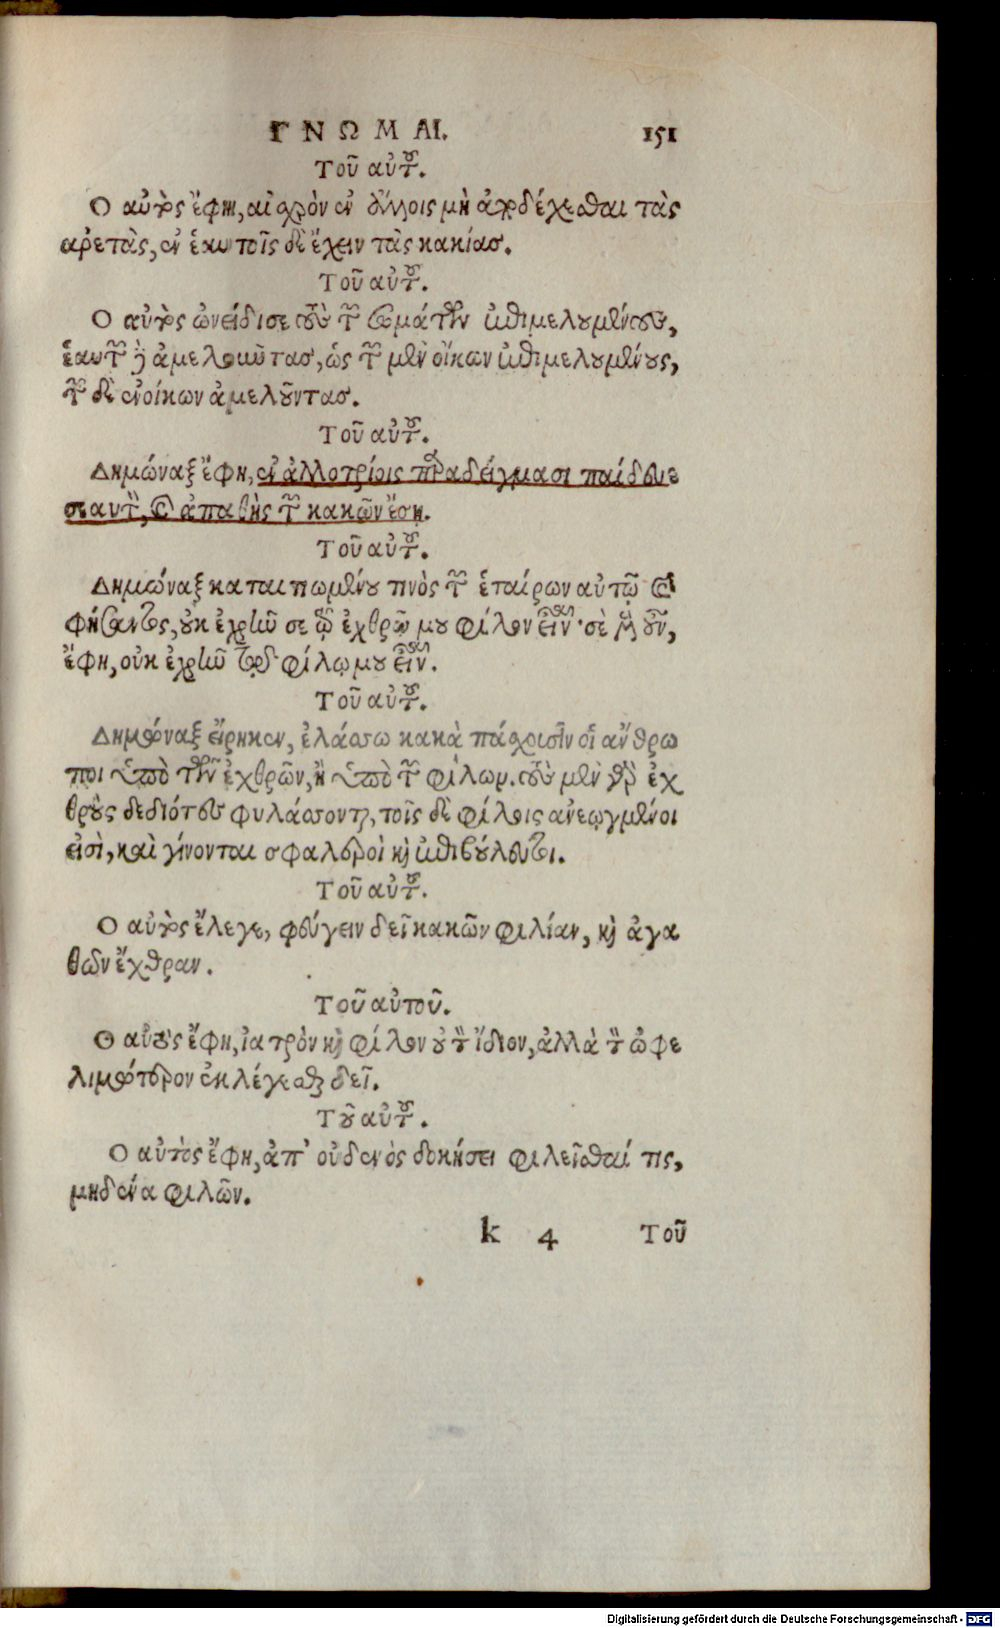 ΓΝΩΜΑΙ. 151
Τοῦ αὐτοῦ.
Ο αὐτὸς ἔφη, αἰσχρὸν ἐν ἄλλοις μὴ ἀποδέχεσθαι τὰς
αρετὰς, ἐν ἑαυτοῖς δὲ ἔχειν τὰς κακίασ.
Τοῦ αὐτοῦ.
Ο αὐτὸς ὠνείδισε τοὺς τῶν σωμάτων ἐπιμελουμένους,
ἑαυτῶν δὲ ἀμελοῦντασ, ὡς τῶν μὲν οἴκων ἐπιμελουμένους,
τῶν δὲ ἐνοίκων ἀμελοῦντασ.
Τοῦ αὐτοῦ.
Δημώναξ ἔφη, ἐν ἀλλοτρίοις παραδείγμασι παίδευε
σεαυτὸν, καὶ ἀπαθὴς τῶν κακῶν ἔσῃ.
Τοῦ αὐτοῦ.
Δημώναξ καταιτιωμένου τινὸς τῶν ἑταίρων αὐτῷ καὶ
φήσαντος, οὐκ ἐχρῆν σε τῷ ἐχθρῷ μου φίλον εἶναι· σὲ μὲν οὖν,
ἔφη, οὐκ ἐχρῆν ἐχθρὸν φίλῳ μου εἶναι.
Τοῦ αὐτοῦ.
Δημώναξ εἴρηκεν, ἐλάσσω κακὰ πάσχουσιν οἱ ἄνθρω
ποι ὑπὸ τῶν ἐχθρῶν, ἢ ὑπὸ τῶν φίλων. τοὺς μὲν γὰρ ἐχ
θροὺς δεδιότες φυλάσσονται, τοῖς δὲ φίλοις ανεῳγμένοι
εἰσὶ, καὶ γίνονται σφαλεροὶ καὶ ἐπιβούλευτοι.
Τοῦ αὐτοῦ.
Ο αὐτὸς ἔλεγε, φεύγειν δεῖ κακῶν φιλίαν, καὶ ἀγα
θῶν ἔχθραν.
Τοῦ αὐτοῦ.
Ο αὐτὸς ἔφη, ἰατρὸν καὶ φίλον οὐ τὸν ἴδιον, ἀλλὰ τὸν ὠφε
λιμώτερον ἐκλέγεσθαι δεῖ.
Τοῦ αὐτοῦ.
Ο αὐτὸς ἔφη, ἀπ' οὐδενὸς δοκήσει φιλεῖσθαί τις,
μηδένα φιλῶν.
k 4 Τοῦ
Digitalisierung gefördert durch die Deutsche Forschungsgemeinschaft - DFG